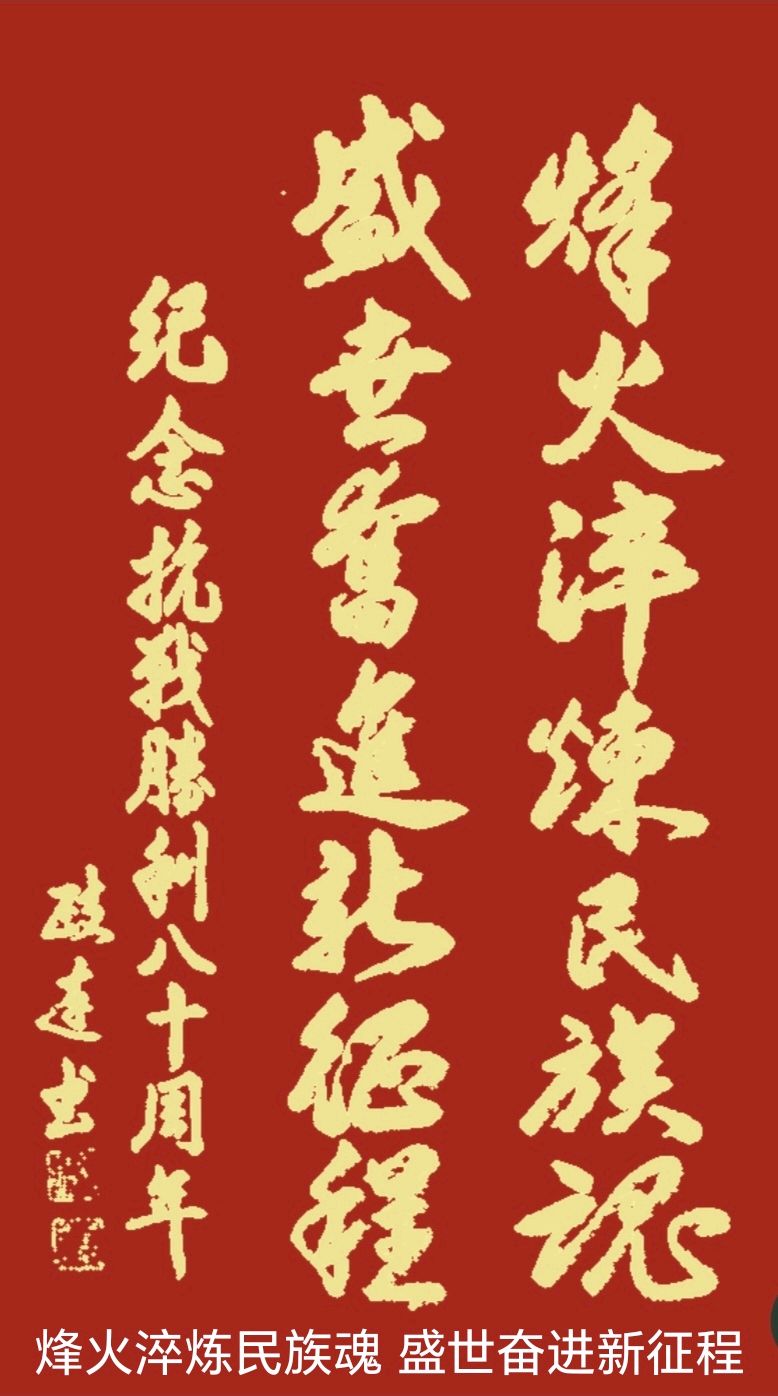 烽火淬煉民族魂
盛世奮進新征程
纪念抗战勝利八十周年
达书
烽火淬炼民族魂 盛世奋进新征程